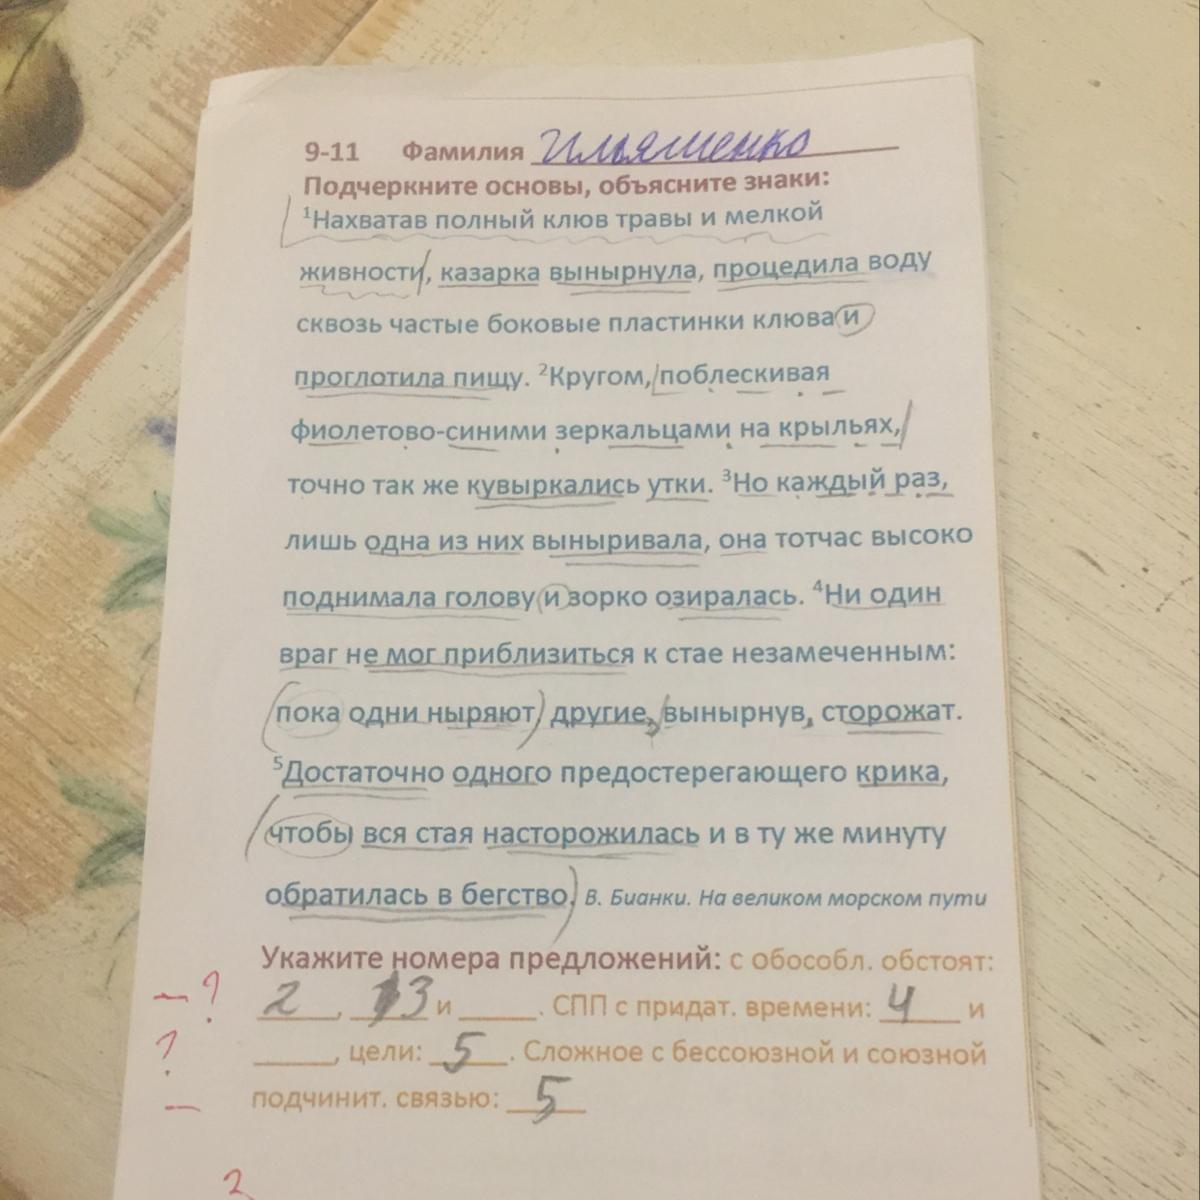 9-11 Фамилия Ильяшенко
Подчеркните основы, объясните знаки:
¹Нахватав полный клюв травы и мелкой
живности, казарка вынырнула, процедила воду
сквозь частые боковые пластинки клюва и
проглотила пищу. ²Кругом, поблескивая
фиолетово-синими зеркальцами на крыльях,
точно так же кувыркались утки. ³Но каждый раз,
лишь одна из них выныривала, она тотчас высоко
поднимала голову и зорко озиралась. ⁴Ни один
враг не мог приблизиться к стае незамеченным:
пока одни ныряют, другие, вынырнув, сторожат.
⁵Достаточно одного предостерегающего крика,
чтобы вся стая насторожилась и в ту же минуту
обратилась в бегство. В. Бианки. На великом морском пути
Укажите номера предложений: с обособл. обстоят:
– ? 2, 3 и ______. СПП с придат. времени: 4 и
? ______, цели: 5. Сложное с бессоюзной и союзной
– подчинит. связью: 5